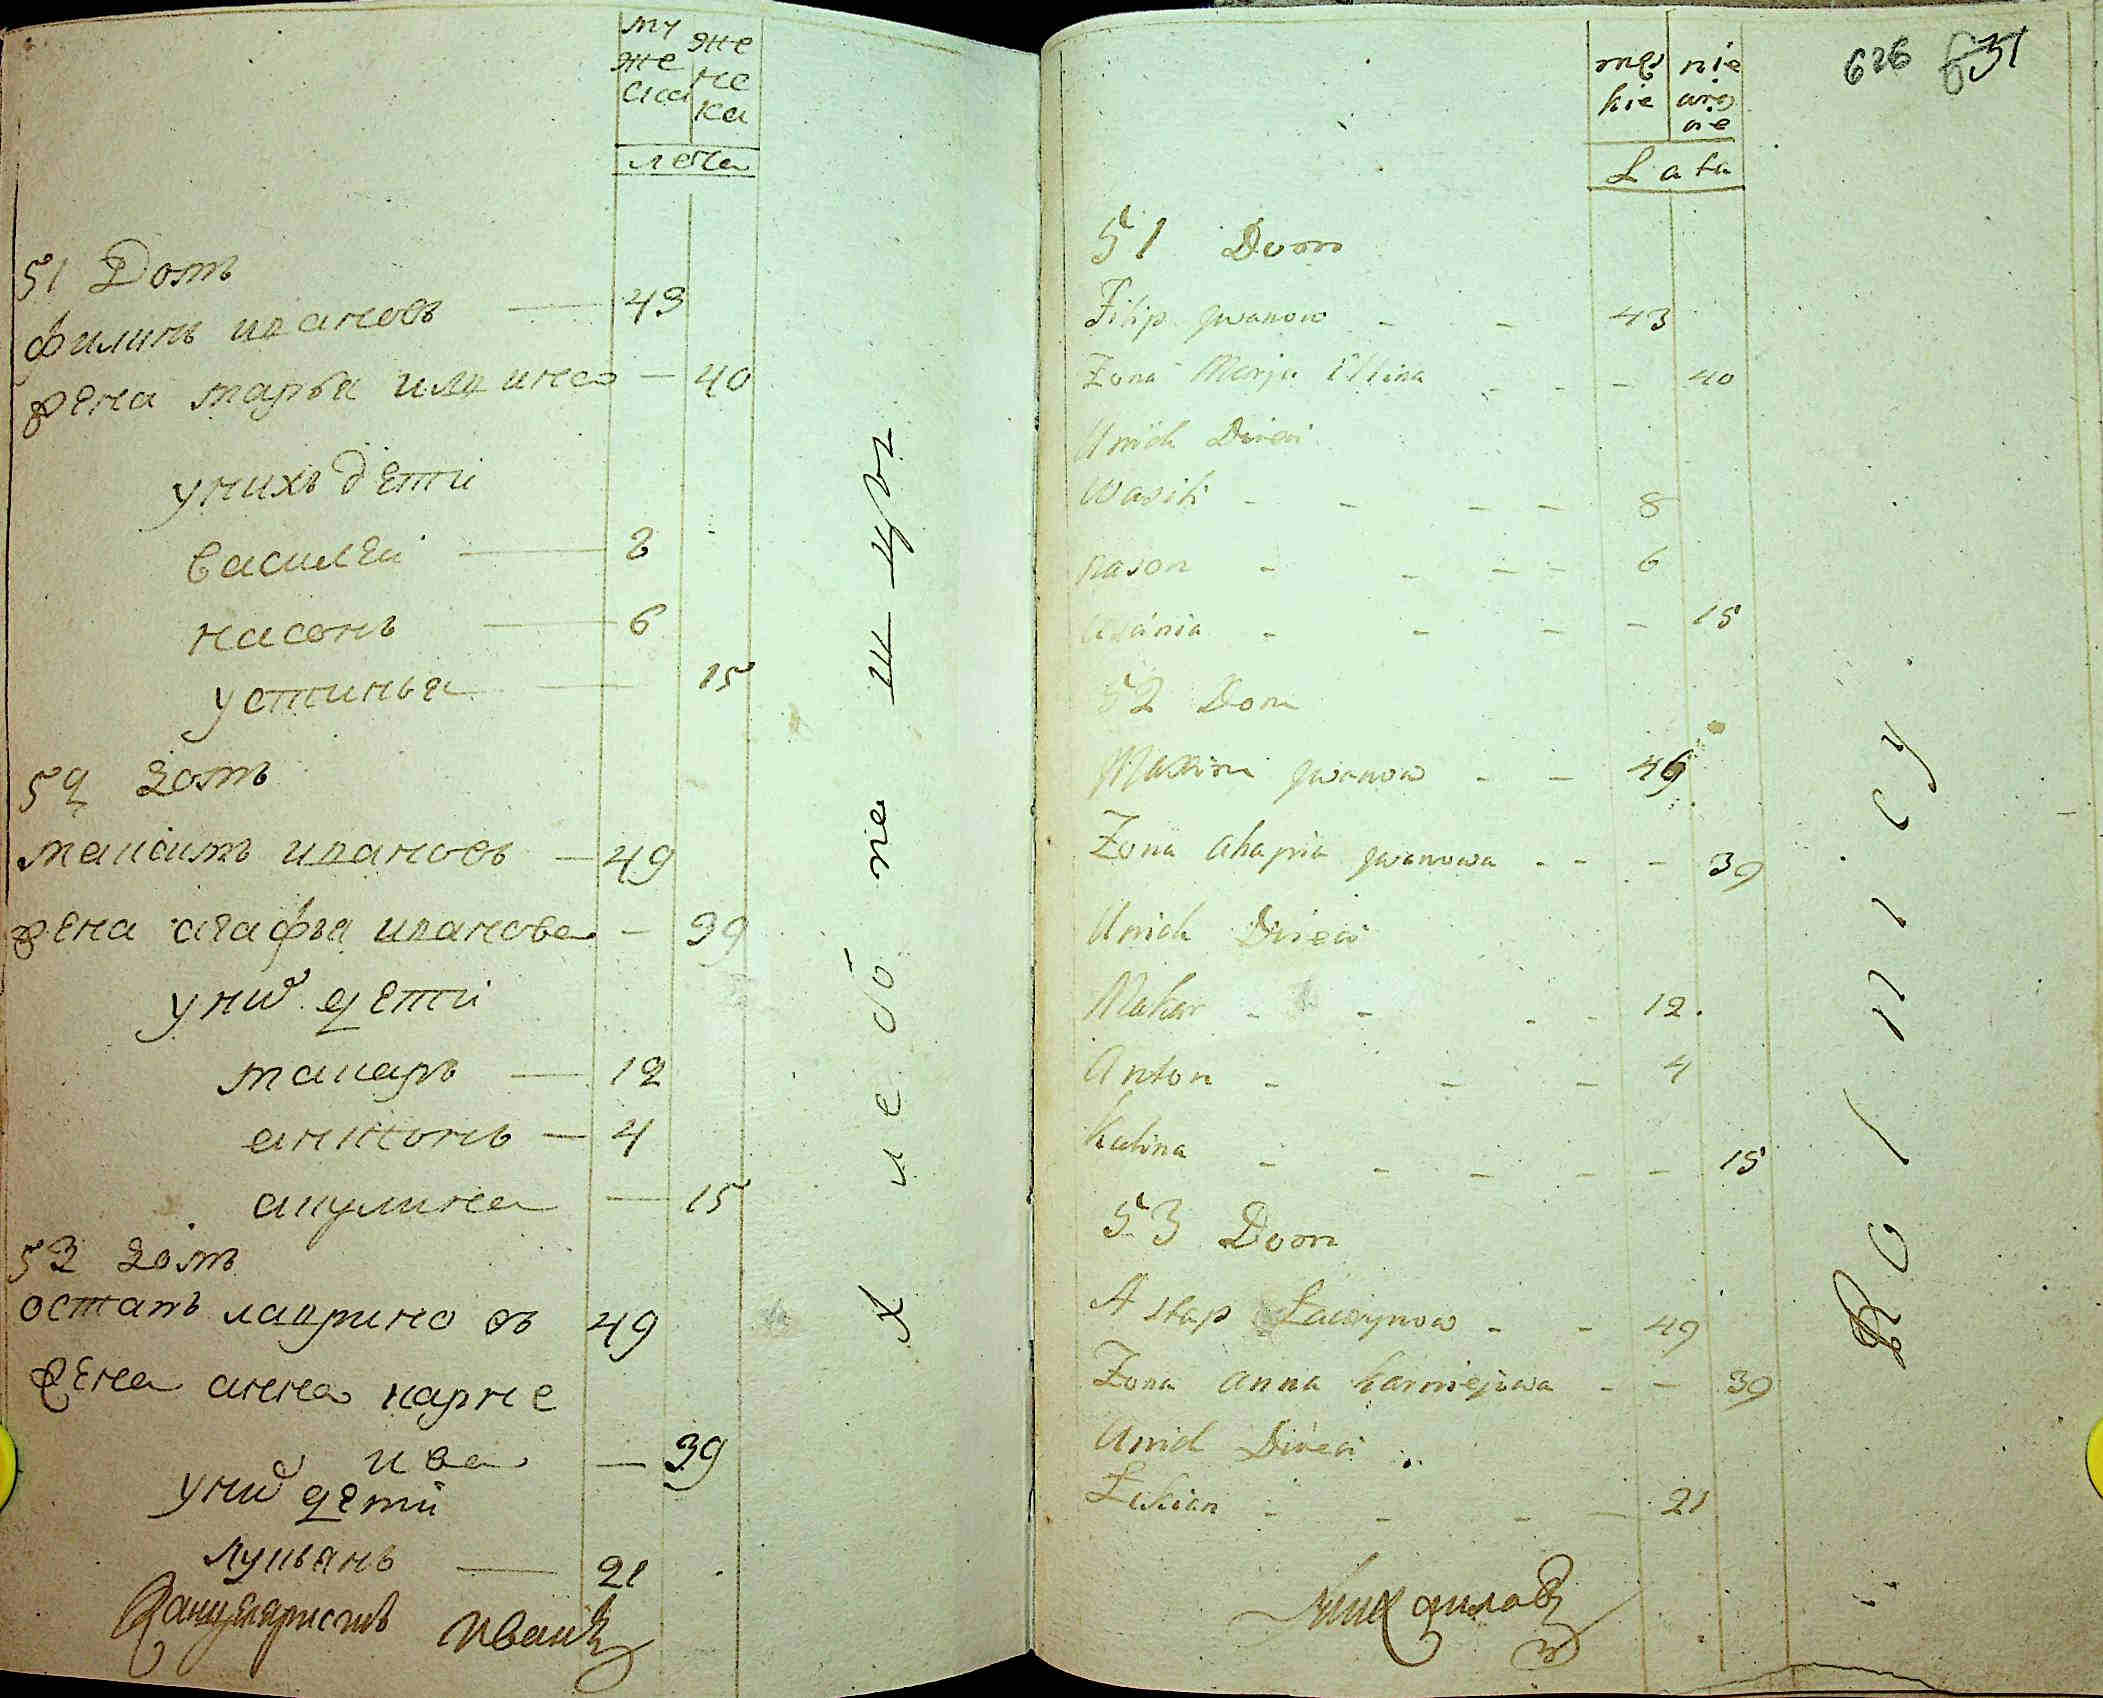 му же ска
же нс ка
лета
51 Домъ
филипъ ивановъ — 43
жена марья илвина — 40
унихъ дети
василеи — 8
насонъ — 6
устинья — 15
52 домъ
максимъ ивановъ — 49
жена агафья иванова — 39
унихъ дети
макаръ — 12
антонъ — 4
акулина — 15
53 домъ
остапъ лавриновъ 49
жена анна карне
ива — 39
унихъ дети
лукьянъ — 21
Канцеляристъ Иванъ
хлебопашцы
męs kie
nie wio
Lata
626
51 Dom
Filip Jwanow - - 43
Zona Marja Illina - - - 40
Unich Dzieci
Wasili - - - - 8
Nason - - - - 6
Ustinia - - - - 15
52 Dom
Maxim Jwanow - - 49
Zona Ahapia Jwanowa - - - 39
Unich Dzieci
Makar - - - - 12.
Anton - - - 4
Kulina - - - - - 15
53 Dom
Astap Ławrynow - - 49
Zona Anna Karniejewa - - 39
Unich Dzieci
Łukian - - - - 21
Михаиловъ
Rolnicy